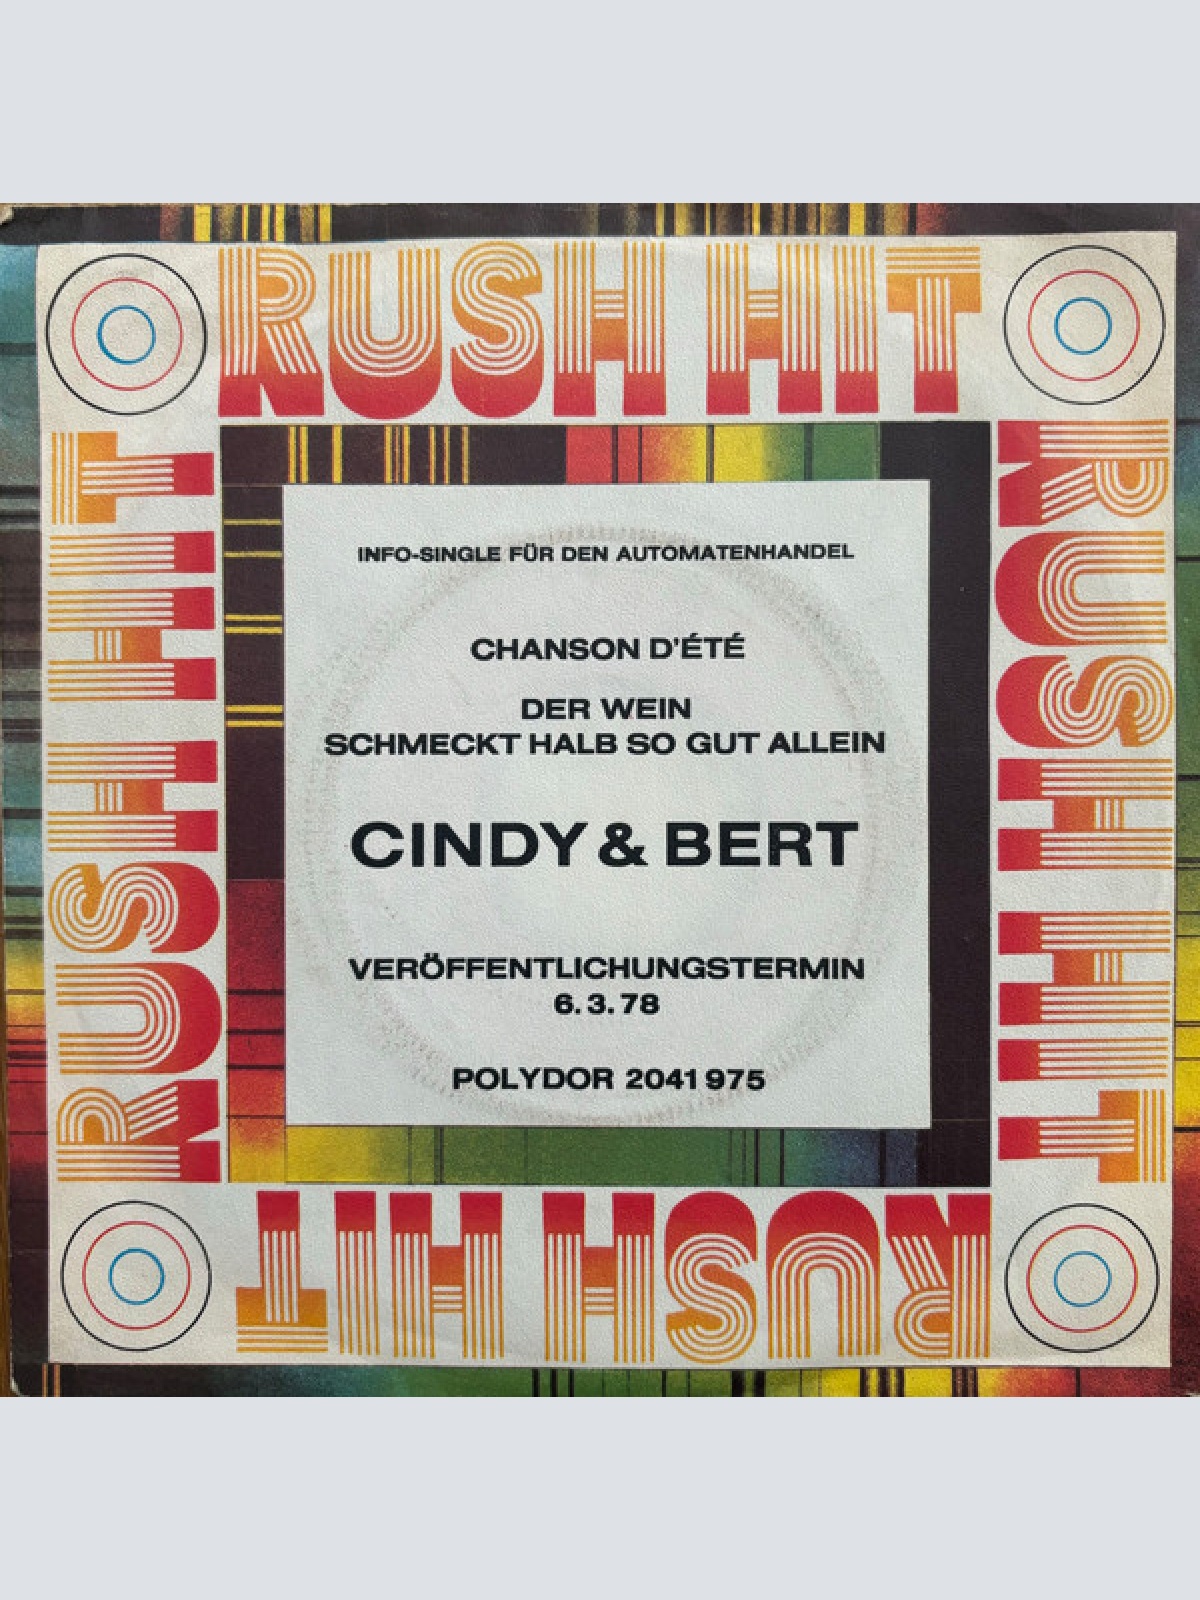 RUSH HIT
RUSH HIT
RUSH HIT
INFO-SINGLE FÜR DEN AUTOMATENHANDEL
CHANSON D'ÉTÉ
DER WEIN
SCHMECKT HALB SO GUT ALLEIN
CINDY & BERT
VERÖFFENTLICHUNGSTERMIN
6.3.78
POLYDOR 2041 975
RUSH HIT